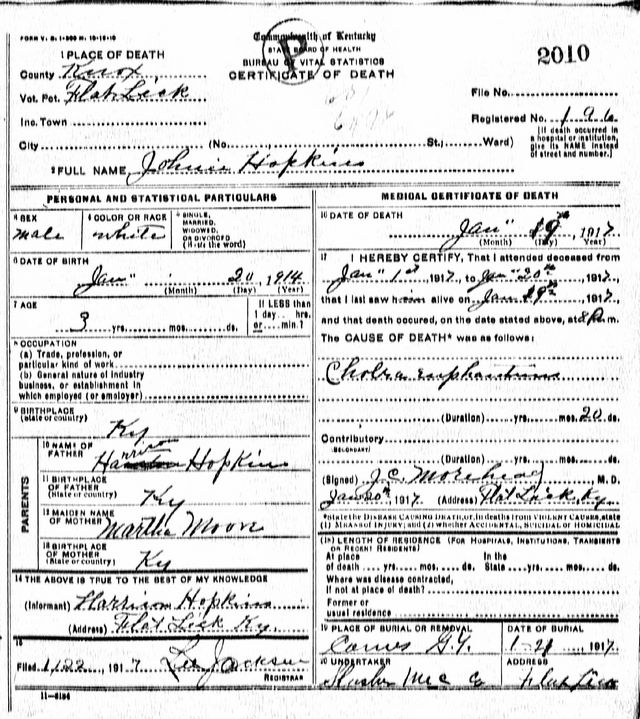 FORM V. S. 1-500 M. 10-16-16
Commonwealth of Kentucky
STATE BOARD OF HEALTH
BUREAU OF VITAL STATISTICS
CERTIFICATE OF DEATH
P
2010
1 PLACE OF DEATH
County Knox
Vot. Pct. Flat Lick
Inc. Town
City (No. St.; Ward)
File No.
Registered No. 196
[If death occurred in a hospital or institution, give its NAME instead of street and number.]
2 FULL NAME Johnie Hopkins
PERSONAL AND STATISTICAL PARTICULARS
3 SEX
male
4 COLOR OR RACE
white
5 SINGLE, MARRIED, WIDOWED, OR DIVORCED (Write the word)
6 DATE OF BIRTH
Jan" 20, 1914
(Month) (Day) (Year)
7 AGE
3 yrs. mos. ds.
If LESS than 1 day hrs. or min.?
8 OCCUPATION
(a) Trade, profession, or particular kind of work
(b) General nature of industry business, or establishment in which employed (or employer)
9 BIRTHPLACE
(State or country) Ky
PARENTS
10 NAME OF FATHER Harrison Hopkins
11 BIRTHPLACE OF FATHER (State or country) Ky
12 MAIDEN NAME OF MOTHER Martha Moore
13 BIRTHPLACE OF MOTHER (State or country) Ky
14 THE ABOVE IS TRUE TO THE BEST OF MY KNOWLEDGE
(Informant) Harrison Hopkins
(Address) Flat Lick Ky.
15
Filed 1/22 1917 Lee Jackson
REGISTRAR
11-6184
MEDICAL CERTIFICATE OF DEATH
16 DATE OF DEATH
Jan" 19th, 1917
(Month) (Day) (Year)
17 I HEREBY CERTIFY, That I attended deceased from
Jan" 1st, 1917, to Jan" 20th, 1917,
that I last saw him alive on Jan 19th, 1917,
and that death occured, on the date stated above, at 8 P. m.
The CAUSE OF DEATH* was as follows:
Cholra
(Duration) yrs. mos. 20 ds.
Contributory
(SECONDARY)
(Duration) yrs. mos. ds.
(Signed) J.C. Morehead M. D.
Jan 20th 1917. (Address) Flat Lick Ky
*State the DISEASE CAUSING DEATH, or, in deaths from VIOLENT CAUSES, state
(1) MEANS OF INJURY; and (2) whether ACCIDENTAL, SUICIDAL or HOMICIDAL
(18) LENGTH OF RESIDENCE (FOR HOSPITALS, INSTITUTIONS, TRANSIENTS OR RECENT RESIDENTS)
At place of death yrs. mos. ds. In the State yrs. mos. ds.
Where was disease contracted,
If not at place of death?
Former or
usual residence
19 PLACE OF BURIAL OR REMOVAL
G.Y.
DATE OF BURIAL
1-21, 1917.
20 UNDERTAKER
Co
ADDRESS
Flat Lick